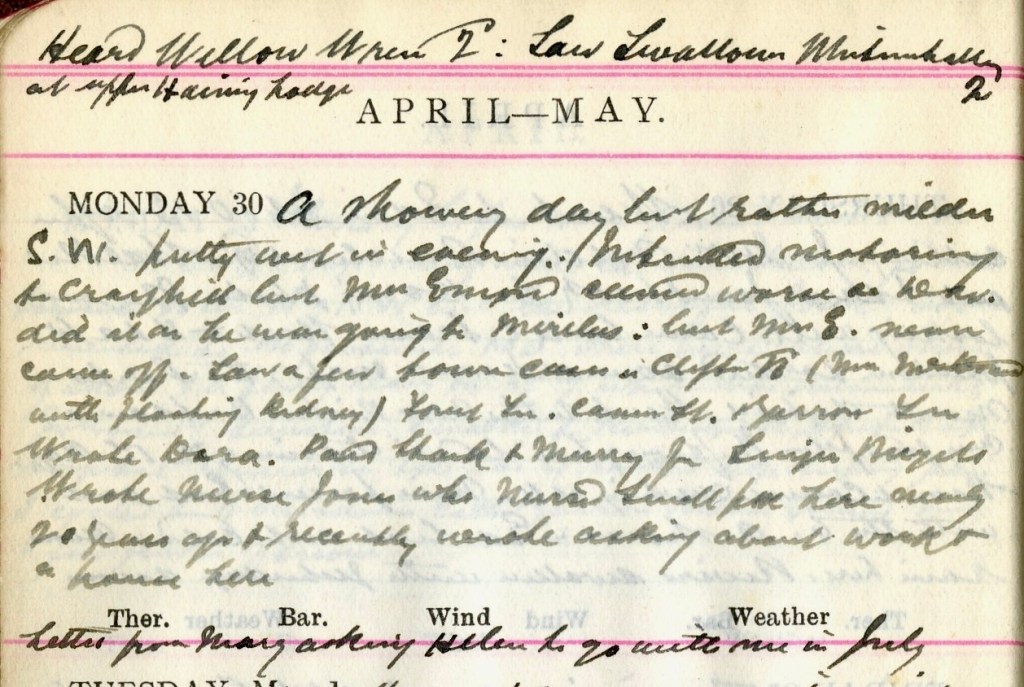 Heard Willow Wren 2: Saw Swallows
at upper Haining Lodge 2
APRIL—MAY.
MONDAY 30 A showery day but rather milder
S. W. pretty wet in evening. Intended motoring
to but Mrs seemed worse so
did it as he was going to : but Mrs E. never
came off. Saw a few town cases in Clifton (Mrs
with floating kidney) St.
Wrote Dora. Paid & Murray for
Wrote Nurse Jones who nursed Small pox here nearly
20 years ago & recently wrote asking about work &
a house here
Ther. Bar. Wind Weather
Letter from Mary asking Helen to go with me in July
TUESDAY